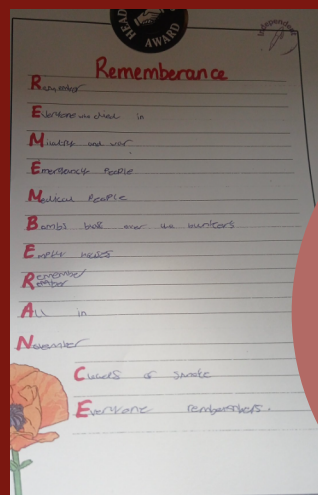 HEAD
AWARD
Independent
Rememberance
Remember
Everyone who died in
Military and war
Emergancy People
Medical People
Bombs over the bunkers
Empty
Remember
All in
November
Clouds of smoke
Everyone remembers.